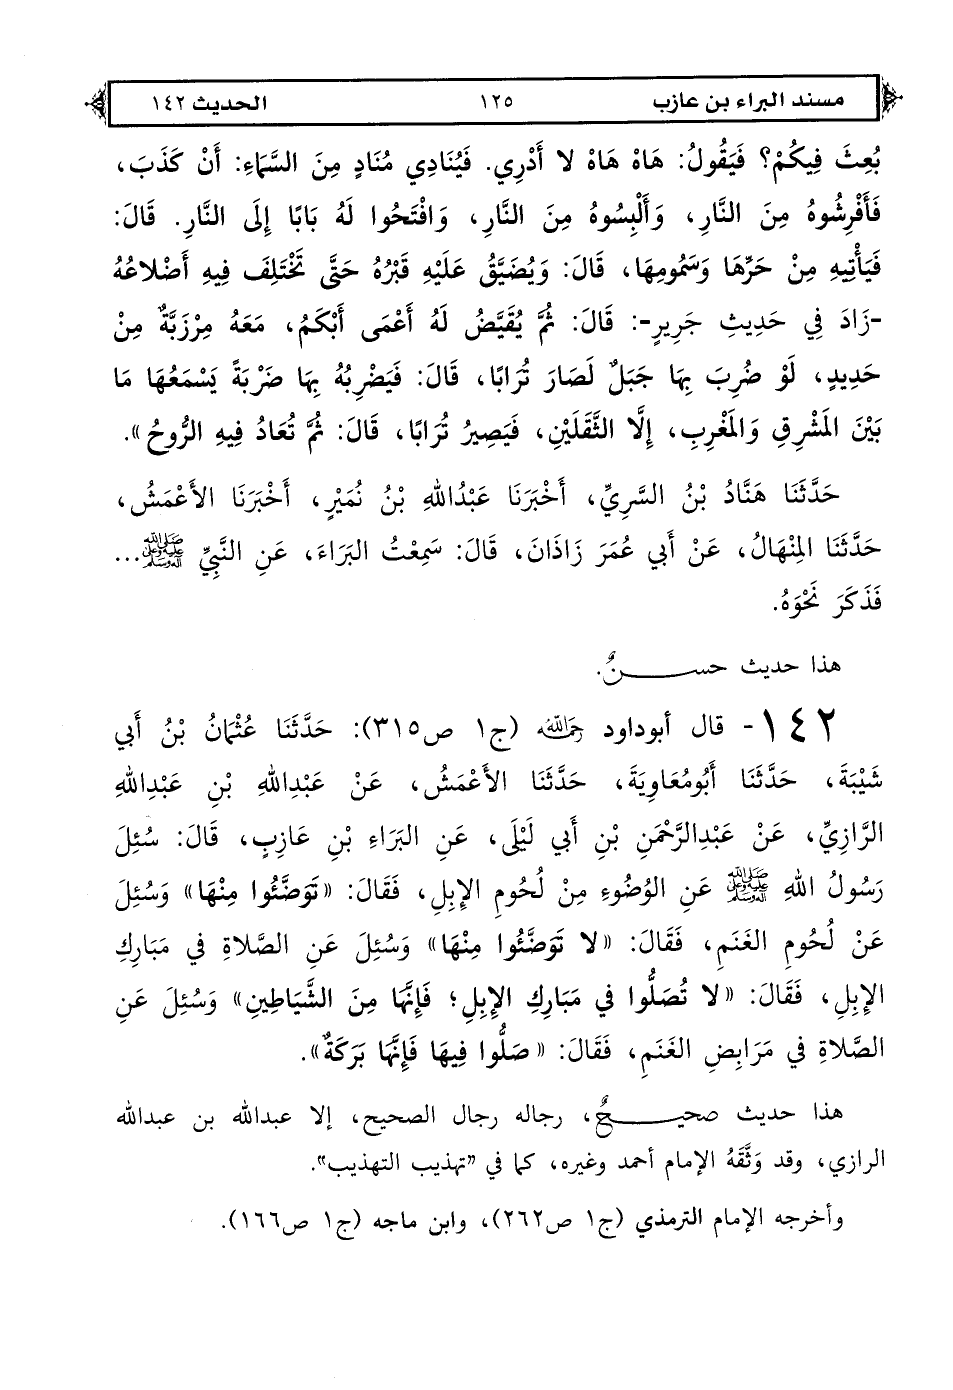 مسند البراء بن عازب ١٢٥ الحديث ١٤٢
بُعِثَ فِيكُمْ؟ فَيَقُولُ: هَاهْ هَاهْ لا أَدْرِي. فَيُنَادِي مُنَادٍ مِنَ السَّمَاءِ: أَنْ كَذَبَ،
فَأَفْرِشُوهُ مِنَ النَّارِ، وَأَلْبِسُوهُ مِنَ النَّارِ، وَافْتَحُوا لَهُ بَابًا إِلَى النَّارِ. قَالَ:
فَيَأْتِيهِ مِنْ حَرِّهَا وَسَمُومِهَا، قَالَ: وَيُضَيَّقُ عَلَيْهِ قَبْرُهُ حَتَّى تَخْتَلِفَ فِيهِ أَضْلاعُهُ
-زَادَ فِي حَدِيثِ جَرِيرٍ-: قَالَ: ثُمَّ يُقَيَّضُ لَهُ أَعْمَى أَبْكَمُ، مَعَهُ مِرْزَبَّةٌ مِنْ
حَدِيدٍ، لَوْ ضُرِبَ بِهَا جَبَلٌ لَصَارَ تُرَابًا، قَالَ: فَيَضْرِبُهُ بِهَا ضَرْبَةً يَسْمَعُهَا مَا
بَيْنَ المَشْرِقِ وَالمَغْرِبِ، إِلَّا الثَّقَلَيْنِ، فَيَصِيرُ تُرَابًا، قَالَ: ثُمَّ تُعَادُ فِيهِ الرُّوحُ».
حَدَّثَنَا هَنَّادُ بْنُ السَّرِيِّ، أَخْبَرَنَا عَبْدُاللهِ بْنُ نُمَيْرٍ، أَخْبَرَنَا الأَعْمَشُ،
حَدَّثَنَا المِنْهَالُ، عَنْ أَبِي عُمَرَ زَاذَانَ، قَالَ: سَمِعْتُ البَرَاءَ، عَنِ النَّبِيِّ ﷺ...
فَذَكَرَ نَحْوَهُ.
هذا حديث حســـنٌ.
١٤٢- قال أبوداود رَحِمَهُ اللهُ (ج١ ص٣١٥): حَدَّثَنَا عُثْمَانُ بْنُ أَبِي
شَيْبَةَ، حَدَّثَنَا أَبُومُعَاوِيَةَ، حَدَّثَنَا الأَعْمَشُ، عَنْ عَبْدِاللهِ بْنِ عَبْدِاللهِ
الرَّازِيِّ، عَنْ عَبْدِالرَّحْمَنِ بْنِ أَبِي لَيْلَى، عَنِ البَرَاءِ بْنِ عَازِبٍ، قَالَ: سُئِلَ
رَسُولُ اللهِ ﷺ عَنِ الوُضُوءِ مِنْ لُحُومِ الإِبِلِ، فَقَالَ: «تَوَضَّئُوا مِنْهَا» وَسُئِلَ
عَنْ لُحُومِ الغَنَمِ، فَقَالَ: «لا تَوَضَّئُوا مِنْهَا» وَسُئِلَ عَنِ الصَّلاةِ فِي مَبَارِكِ
الإِبِلِ، فَقَالَ: «لا تُصَلُّوا فِي مَبَارِكِ الإِبِلِ؛ فَإِنَّهَا مِنَ الشَّيَاطِينِ» وَسُئِلَ عَنِ
الصَّلاةِ فِي مَرَابِضِ الغَنَمِ، فَقَالَ: «صَلُّوا فِيهَا فَإِنَّهَا بَرَكَةٌ».
هذا حديث صحيـــحٌ، رجاله رجال الصحيح، إلا عبدالله بن عبدالله
الرازي، وقد وَثَّقَهُ الإمام أحمد وغيره، كما في "تهذيب التهذيب".
وأخرجه الإمام الترمذي (ج١ ص٢٦٢)، وابن ماجه (ج١ ص١٦٦).